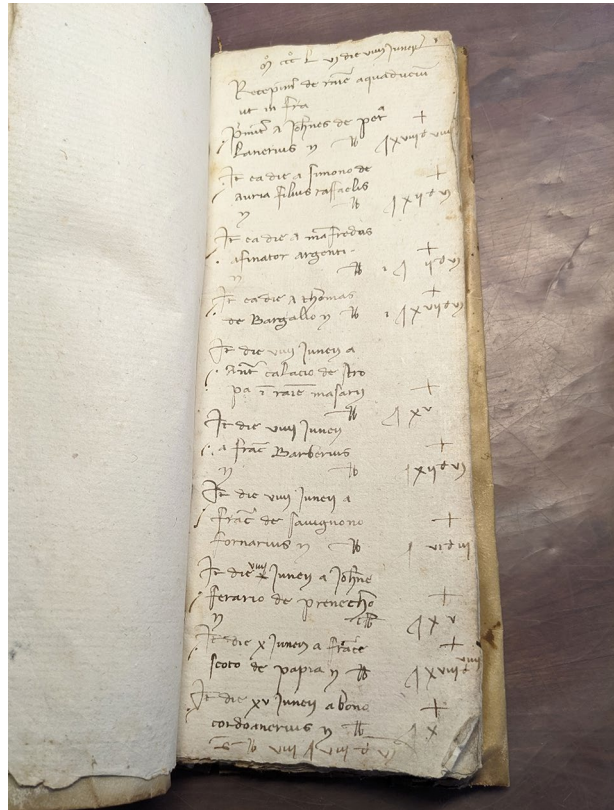 M ccc L vi die viiii Junij
Recepimus de racione aquaductum
ut in fra
Primit a Johnes de pet
Lanerius n lb s xviii d viiii
It ea die a simono de
auria filius raffaelis
n lb s xii d vi
It ea die a mafredus
afinator argenti
n lb i s ii d vi
It ea die a thomas
de Bargallo n lb i s xvii d vi
It die viiii Junij a
Ant calacio de stro
pa i racione masarii
lb s xv
It die viiii Junij
a franc Barberius
n lb s xii d vi
It die viiii Junij a
franc de sauignono
fornarius n lb s vi d iii
It die viiii Junij a Johne
ferario de prenecho
n lb s x v
It die x Junij a france
scoto de papia n lb s xviii d viiii
It die xv Junij a bono
cordoanerius n lb s x
S lb viii s viiii d vi